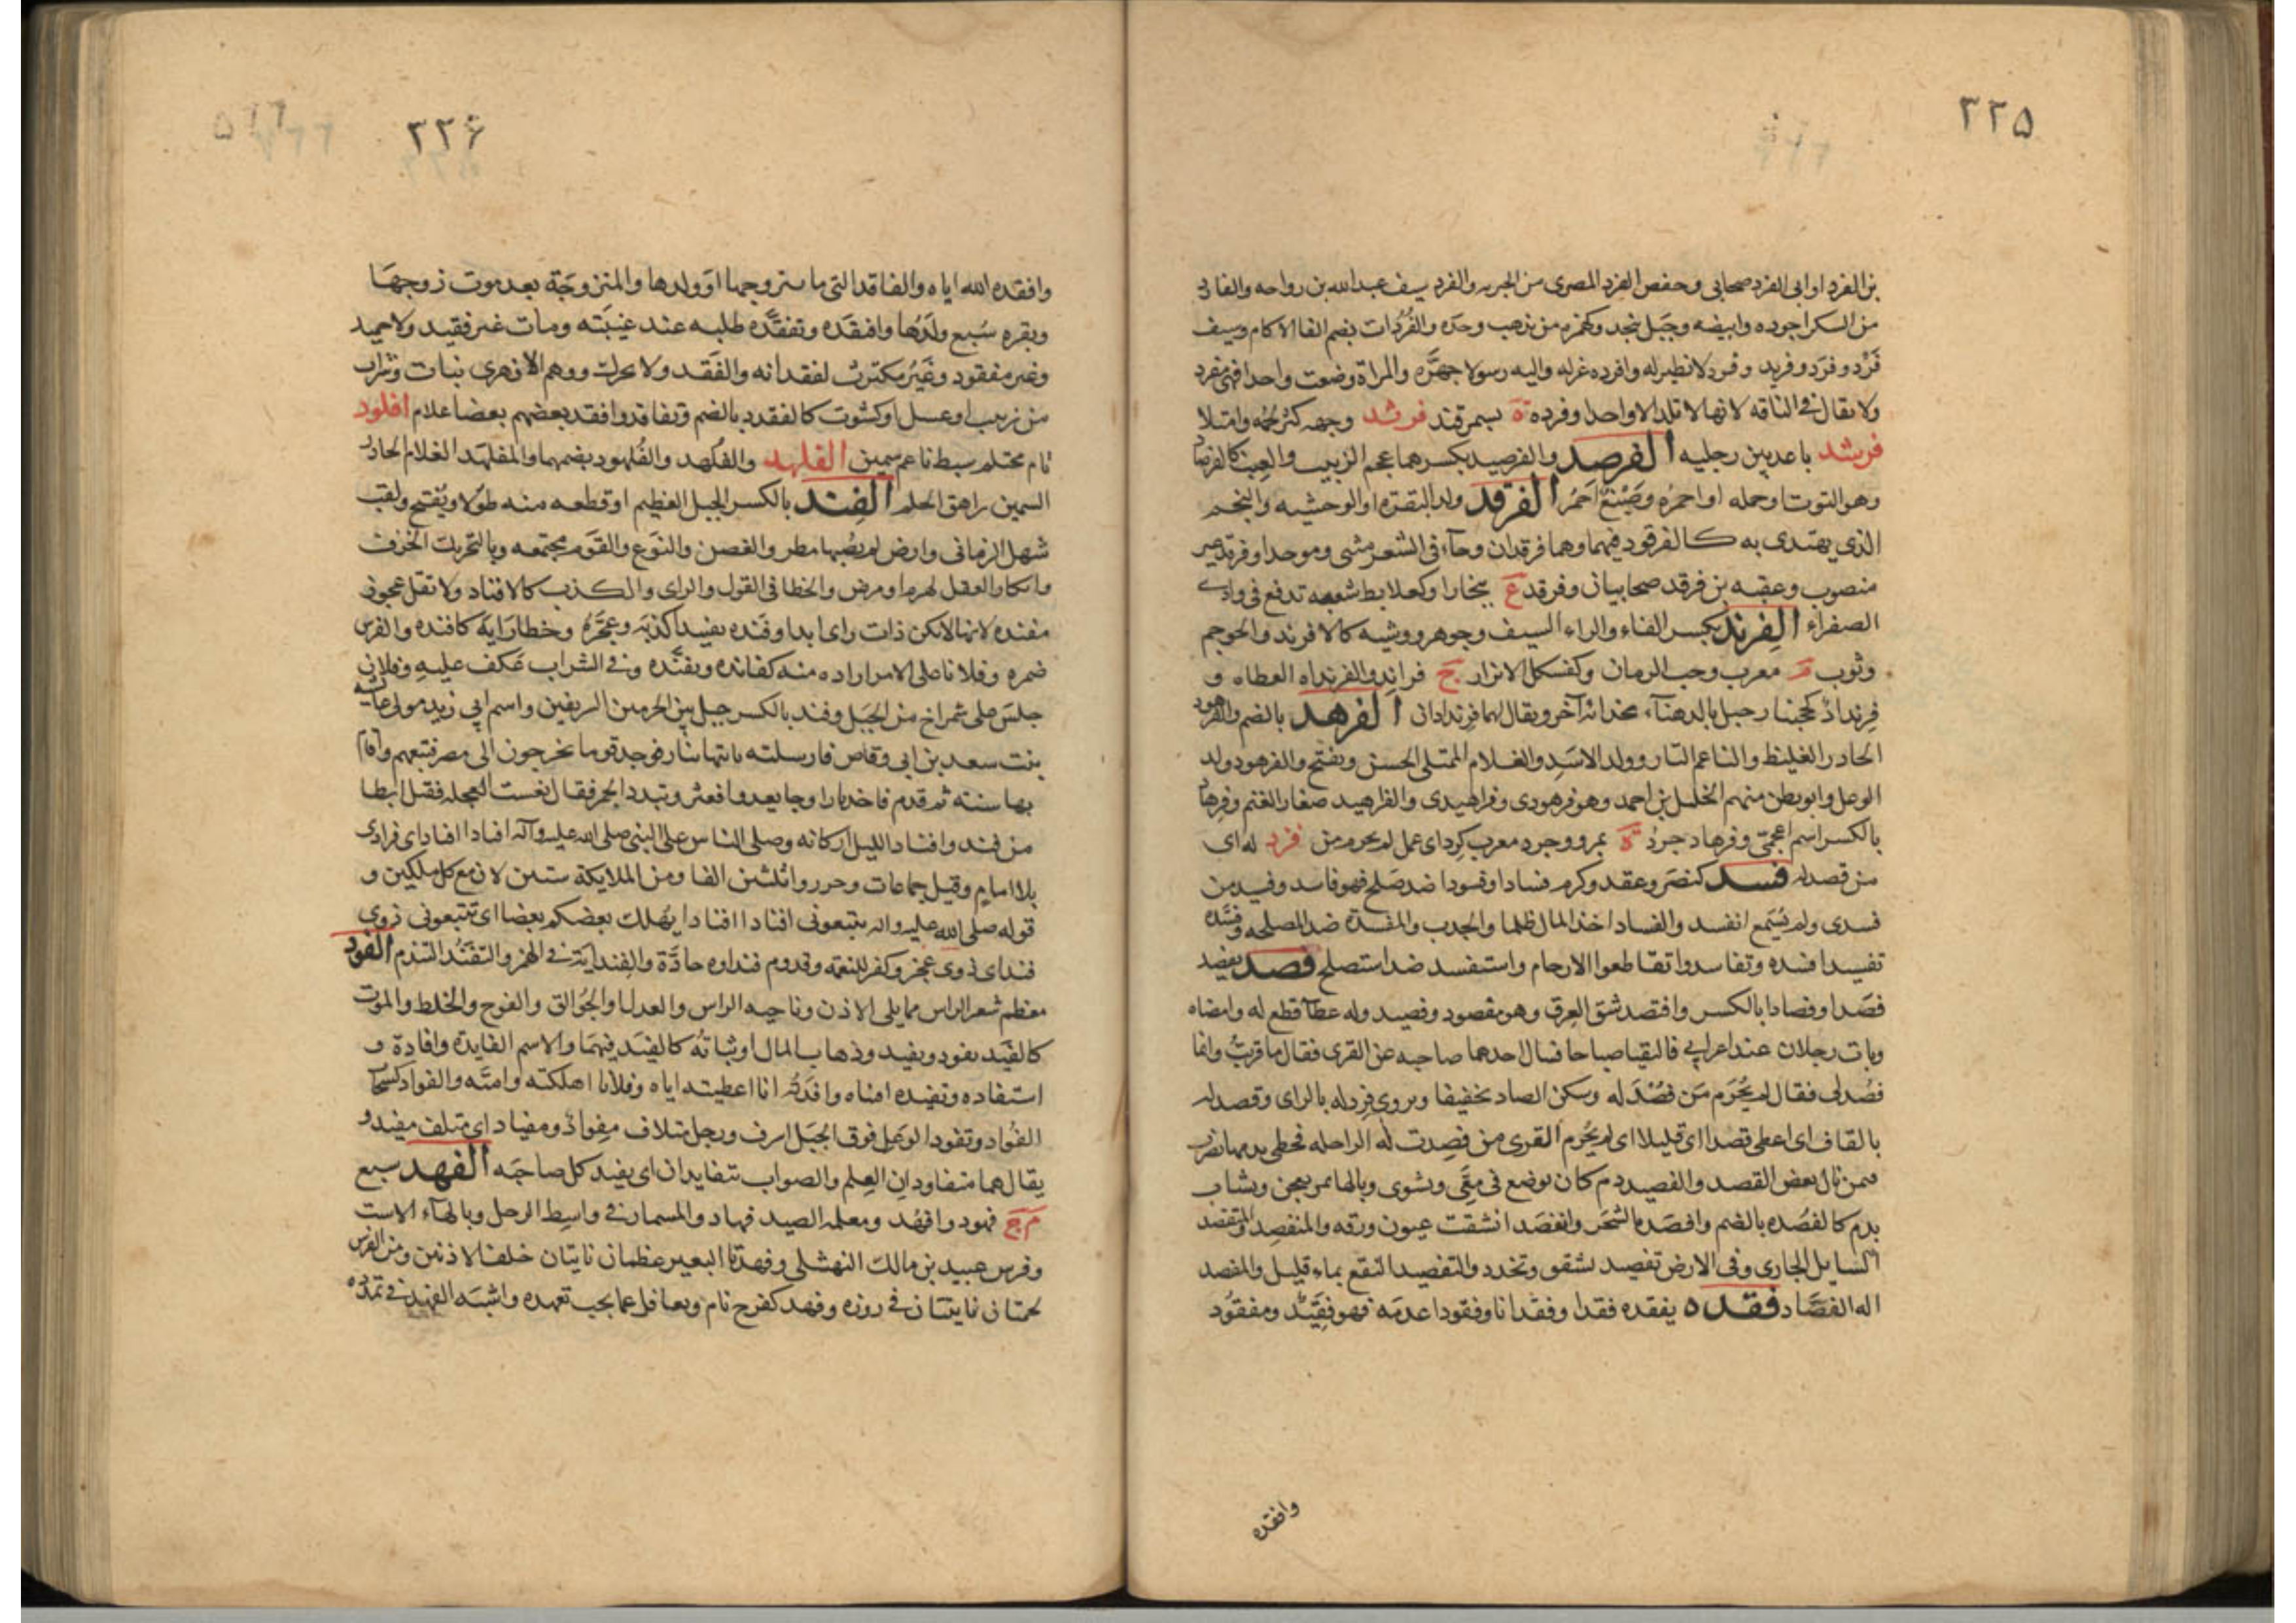 ٢٢٥
بن الفرد او ابی الفرد صحابی وحفص الفرد المصری من الجبریه والفرد سیف عبدالله بن رواحه والفارد
من السکر اجوده وابیضه وجبل بنجد وکمخرم من یذهب وحده والفُرُدات بضم الفا الاکام وسیف
فَرْد وفَرَد وفرید وفرد لا نظیر له وافرده عزله والیه رسولا جهّزه والمراة وضعت واحدا فهی مفرد
ولا یقال فی الناقه لانها لا تلد الا واحدا وفرده ة بسمرقند فرشد وجهه کثر لحمه وامتلا
فرشد باعد بین رجلیه الفرصد والفرصید بکسرهما عجم الزبیب والعنب کالفرصاد
وهو التوت او حمله او احمره وصِبْغ احمَرُ الفرقد ولد البقره او الوحشیه والنجم
الذی یهتدی به کالفرقود فیهما وهما فرقدان وجاء فی الشعر مثنی وموحدا وفرقد غیر
منصوب وعتبه بن فرقد صحابیان وفرقد ع ببخارا وکعلابط شعبه تدفع فی وادی
الصفراء الفِرِند بکسر الفاء والراء السیف وجوهره ووشیه کالافرند والحوجم
وثوب م معرب وحب الرمان وکفسکل الابزار ج فراند والفرنداه القطاه و
فِرِنداذ کجحنبار جبل بالدهناء بحذائه آخر ویقال لهما فرندادان الفرهد بالضم والفرهود
الحادر الغلیظ والناعم التار وولد الاسَد والغلام الممتلی الحسن ویفتح والفرهود ولد
الوعل وابو بطن منهم الخلیل بن احمد وهو فرهودی وفراهیدی والفراهید صغار الغنم وفرهاد
بالکسر اسم اعجمیّ وفرهاد جردْ ة بمرو وجرد معرب کرد ای عمل لم یحرم من فزد له ای
من فصد له فسد کنصر وعقد وکرم فسادا وفسودا ضد صَلح فهو فاسد وفسید من
فسدی ولم یُسْمع انفسد والفساد اخذ المال ظلما والجدب والمفسدة ضد المصلحه وفسّده
تفسیدا افسده وتفاسدوا تقاطعوا الارحام واستفسد ضد استصلح فصد یفصد
فصَدا وفصادا بالکسر وافتصد شق العِرق وهو مفصود وفصید وله عطاء قطع له وامضاه
وبات رجلان عند اعرابی فالتقیا صباحا فسال احدهما صاحبه عن القری فقال ما قریتُ وانما
فصُد لی فقال لم یُحْرَم مَن فُصْدَ له وسکن الصاد تخفیفا ویروی فزد له بالزای وقصد له
بالقاف ای اعطی قصدا ای قلیلا ای لم یُحْرم القری من فصِدت له الراحله فحظی بدمها یضرب
فیمن نال بعض القصد والفصید دم کان یوضع فی مِعًی ویشوی وبالها تمر یعجن ویشاب
بدم کالفصْده بالضم وافصد الشجر وانفصد انشقت عیون ورقه والمنفصد والمتفصد
السایل الجاری وفی الارض تفصید تشقق وتخدد والتفصید النقع بماء قلیل والمفصد
اله الفصّاد فقده یفقده فقدا وفقدانا وفقودا عدمَه فهو فقِیْد ومفقوُد
وافقده
٢٢۶
وافقده الله ایاه والفاقد التی مات زوجها اوَ ولدها والمتزوجة بعد موت زوجهَا
وبقره سُبع ولَدُها وافتقَده وتفقّده طلبه عند غیبَته ومات غیر فقید ولا حمید
وغیر مفقود وغَیْر مکترث لفقدانه والفَقَد ولا یحرک ووهم الازهری نبات وشراب
من زبیب او عسل او کشوت کالفقدد بالضم وتفاقدوا فقد بعضهم بعضا غلام افلود
تام محتلم سبط ناعم سمین الفلهد والفَلْهد والفُلهود بضمهما والمفلهَد الغلام الحادر
السمین راهق الحلم الفِند بالکسر الجبل العظیم او قطعه منه طوّلا ویُفتح ولقب
شهل الزمانی وارض لم یصبها مطر والغصن والنوَع والقوَم مجتمعه وبالتحریک الخرف
وانکار العقل لهرم او مرض والخطا فی القول والرای والکذب کالافناد ولا تقل عجوز
مفنده لانها لم تکن ذات رای ابدا وفنده تفنیدا کذبَه وعجّزه وخطا رَایه کافنده والفرس
ضمره وفلانا علی الامر اراده منه کفانده وتفنّده وفی الشراب عَکف علیهِ وفلان
جلسَ علی شمراخ من الجَبَل وفند بالکسر جبل بین الحرمین الشریفین واسم ابی زید مولی عائشه
بنت سعد بن ابی وقاص فارسلته یاتیها بنار فوجد قوما یخرجون الی مصر فتبعهم واقام
بها سنته ثم قدم فاخذ نارا وجا یعدو فعثر وتبدد الجمر فقال تعست العجله فقیل ابطا
من فند وافناد اللیل ارکانه وصلی الناس علی النبی صلی الله علیه وآله افنادا افنادا ای فرادی
بلا امام وقیل جماعات وحرروا ثلثین الفا ومن الملایکة ستین لان مع کل ملکین و
قوله صلی الله علیه واله تتبعونی افنادا افنادا یُهلک بعضکم بعضا ای تتبعونی ذوی
فند ای ذوی عجز وکفر للنعمه وقدوم فنداوه حادَّة والفندایة فی الهمز والتفنّد التندم الفود
معظم شعر الراس مما یلی الاذن وناحیه الراس والعدل والجُوالق والفوج والخلط والموت
کالفَید یفود ویفید وذهاب المال او ثباتُه کالفیَد فیهمَا والاسم الفایدة وافادة و
استفاده وتفیده اقتناه وافدتُه انا اعطیته ایاه وفلانا اهلکته وامتّه والفوَاد کسحاب
الفُؤاد وتفود الوَعَل فوق الجبَل اشرف ورجل متلاف مِفوادْ ومفیاد ای متلف مفید و
یقال هما متفاودان العِلم والصواب یتفایدان ای یفید کل صاحبَه الفهد سبع
م ج فهود وافهُد ومعلمه الصید فهاد والمسمار فی واسِط الرحل وبالهاء الاست
وفرس عبید بن مالک النهشلی وفهدتا البعیر عظمان ناتیان خلف الاذنین ومن الفرس
لحمتان ناتیتان فی زوره وفهد کفرح نام وتغافل عما یجب تعهده واشبه الفهد فی تمدّده